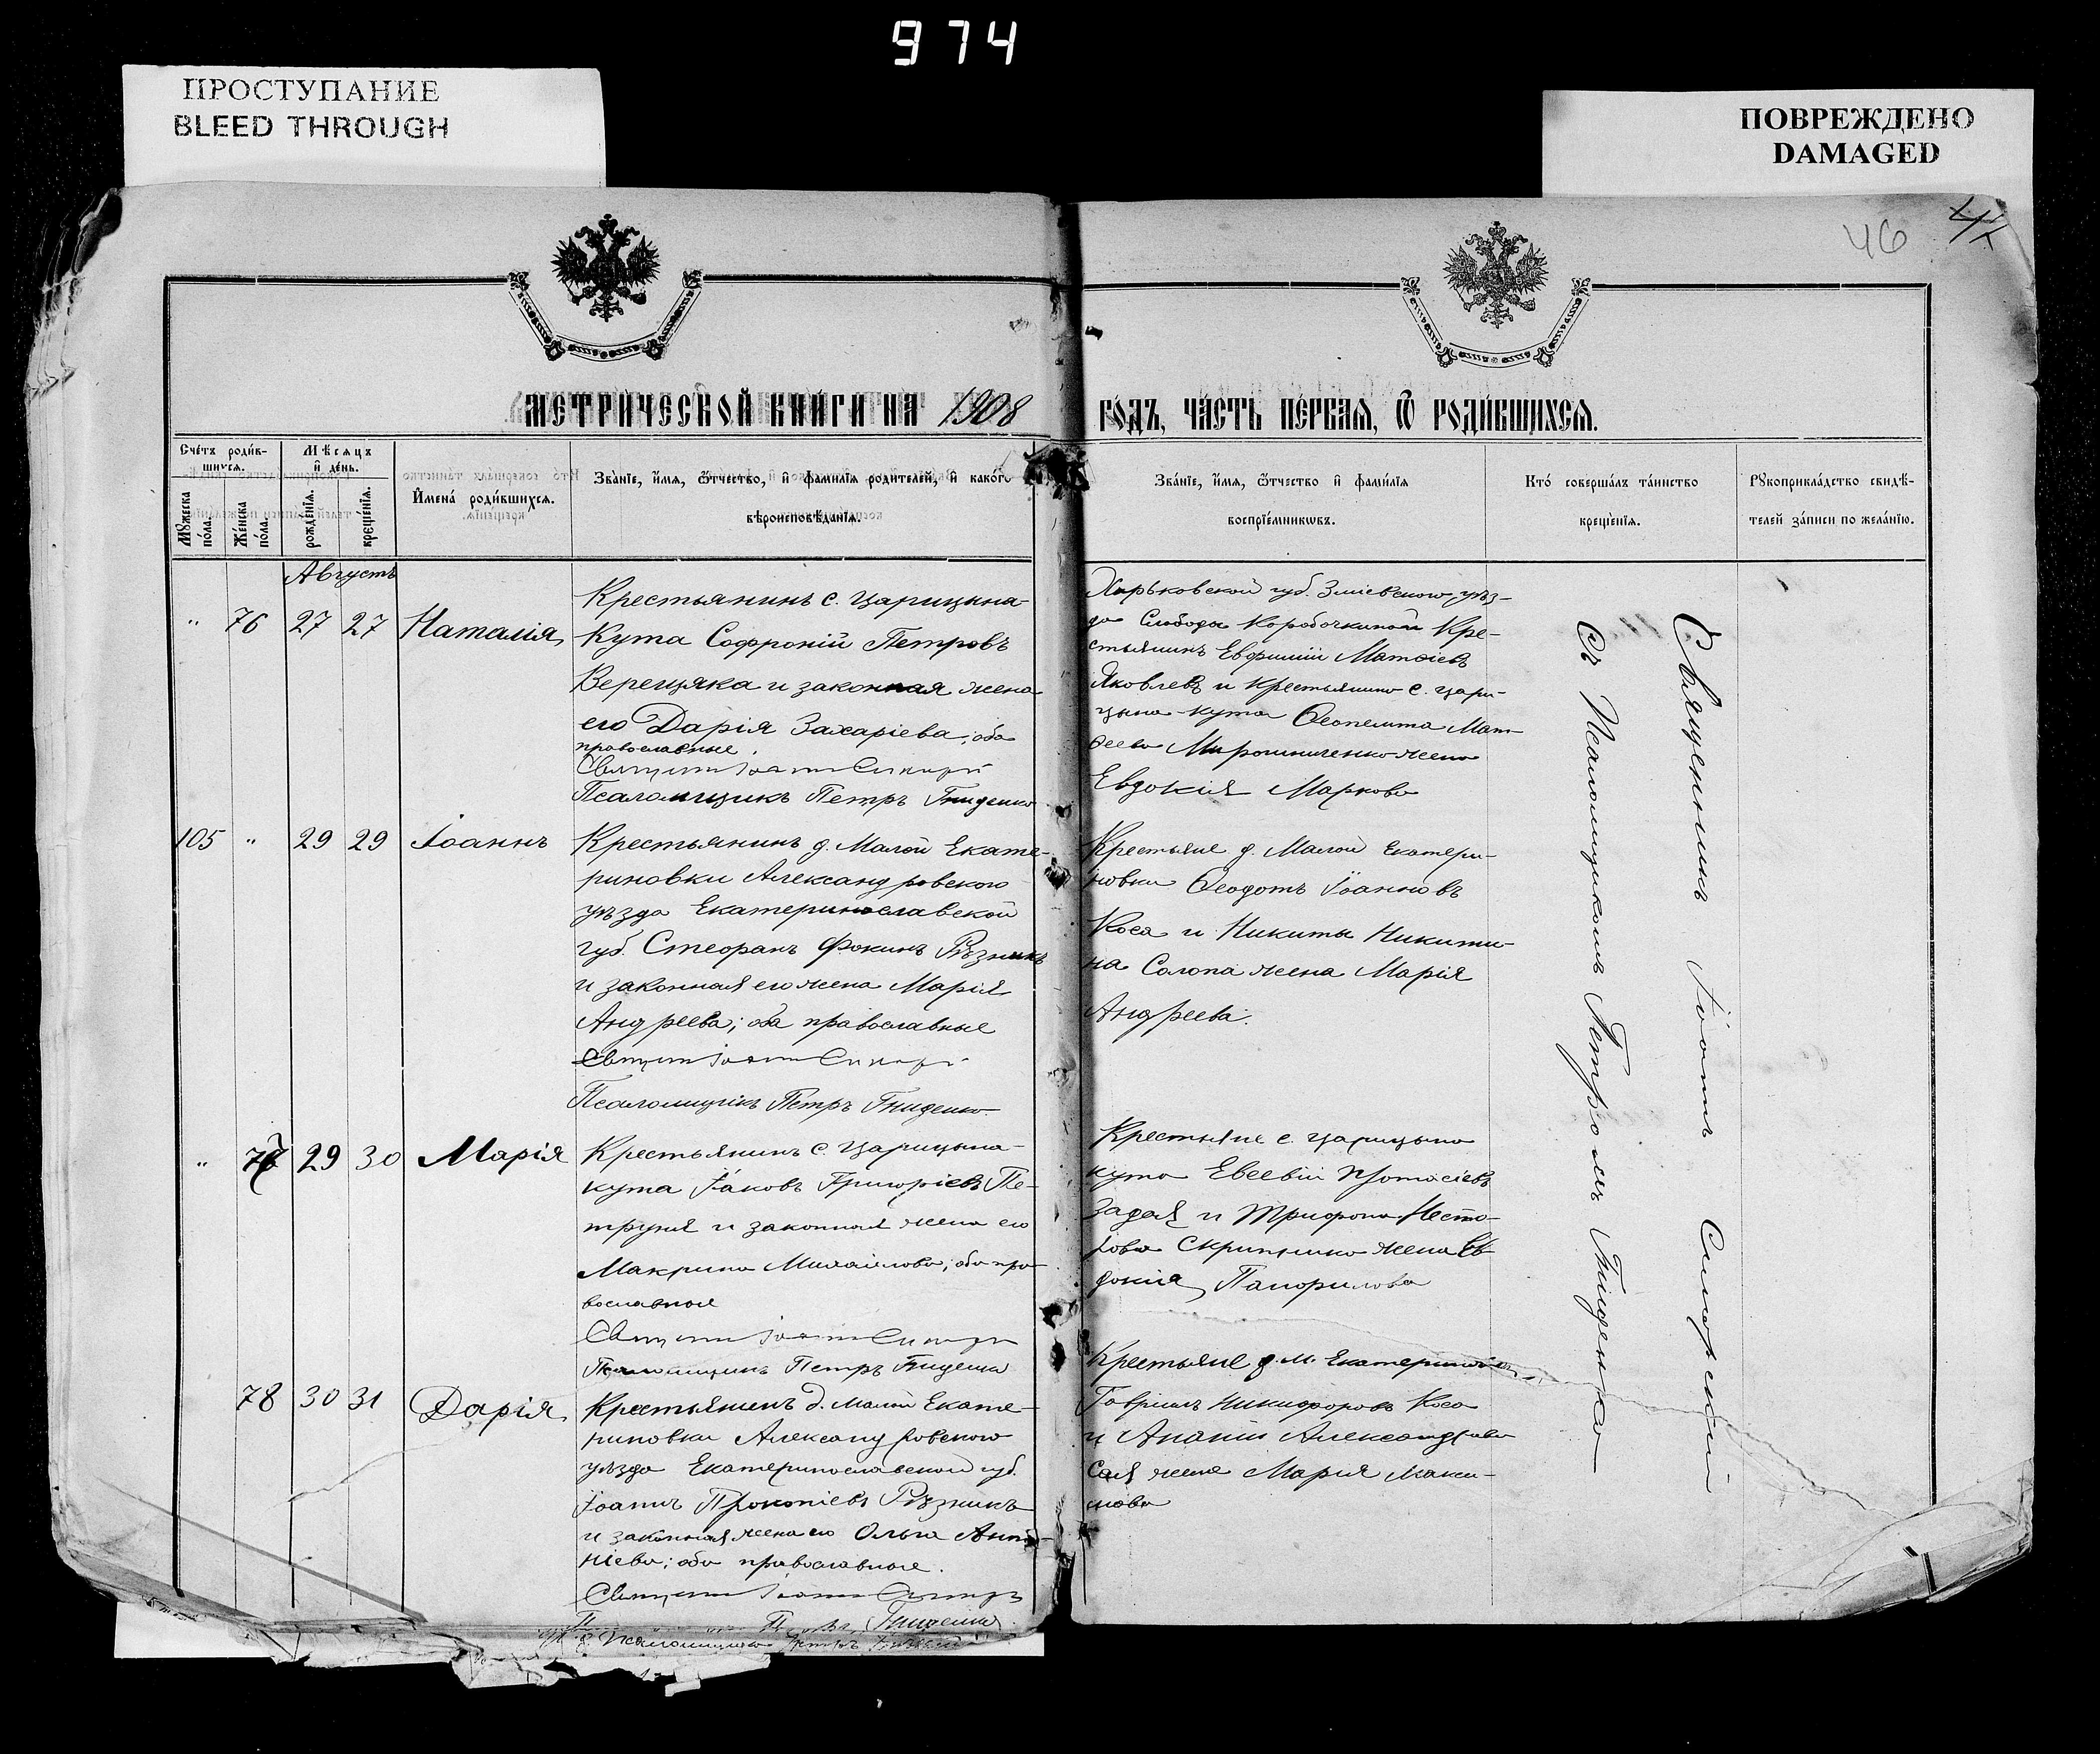 974
ПРОСТУПАНИЕ
BLEED THROUGH
ПОВРЕЖДЕНО
DAMAGED
46
МЕТРИЧЕСКОЙ КНИГИ НА 1908
ГОДЪ, ЧАСТЬ ПЕРВАЯ, Ѿ РОДИВШИХСЯ.
Счетъ родив-
шихся.
Мужеска пола.
Женска пола.
Мѣсяцъ
и день.
рожденія.
крещенія.
Имена родившихся.
Званіе, имя, ѿчество, и фамилія родителей, и какого
вѣроисповѣданія.
Званіе, имя, ѿчество и фамилія
воспріемниковъ.
Кто совершалъ таинство
крещенія.
Рукоприкладство свидѣ-
телей записи по желанію.
Августъ
" 76 27 27 Наталія
Крестьянинъ с. Царицына-
Кута Софроній Петровъ
Верещака и законная жена
его Дарія Захаріева; оба
православные.
Псаломщикъ Петръ Гниденко
Харьковской губ. Зміевского уѣз-
да Слободы Коробочкиной Кре-
стьянинъ Евфимій Матѳіевъ
Яковлевъ и крестьянина с. Цари-
цына-Кута Ѳеопемта Мат-
ѳеева Мирошниченко жена
Евдокія Маркова
105 " 29 29 Іоаннъ
Крестьянинъ д. Малой Екате-
риновки Александровского
уѣзда Екатеринославской
губ. Стефанъ Фокинъ Рѣзникъ
и законная его жена Марія
Андреева; оба православные
Псаломщикъ Петръ Гниденко
Крестьяне д. Малой Екатери-
новки Ѳеодотъ Іоанновъ
Коса и Никиты Никити-
на Солопа жена Марія
Андреева.
" 77 29 30 Марія
Крестьянинъ с. Царицына-
кута Іаковъ Григоріевъ Пе-
труня и законная жена его
Макрина Михаилова; оба пра
вославные
Псаломщикъ Петръ Гниденко
Крестьяне с. Царицына
кута Евсевій Протасіевъ
Задая и Трифона Несто-
рова Скрипника жена Ев-
докія Памфилова
78 30 31 Дарія
Крестьянинъ д. Малой Екате-
риновки Александровского
уѣзда Екатеринославской губ.
Іоаннъ Прокопіевъ Рѣзникъ
и законная жена его Ольга Анто-
ніева; оба православные.
Крестьяне д. М. Екатериновки
Гавріилъ Никифоровъ Коса
и Ананіи Александрова
Сая жена Марія Макси-
мова
Священникъ Іоаннъ
съ Псаломщикомъ Петромъ Гниденко